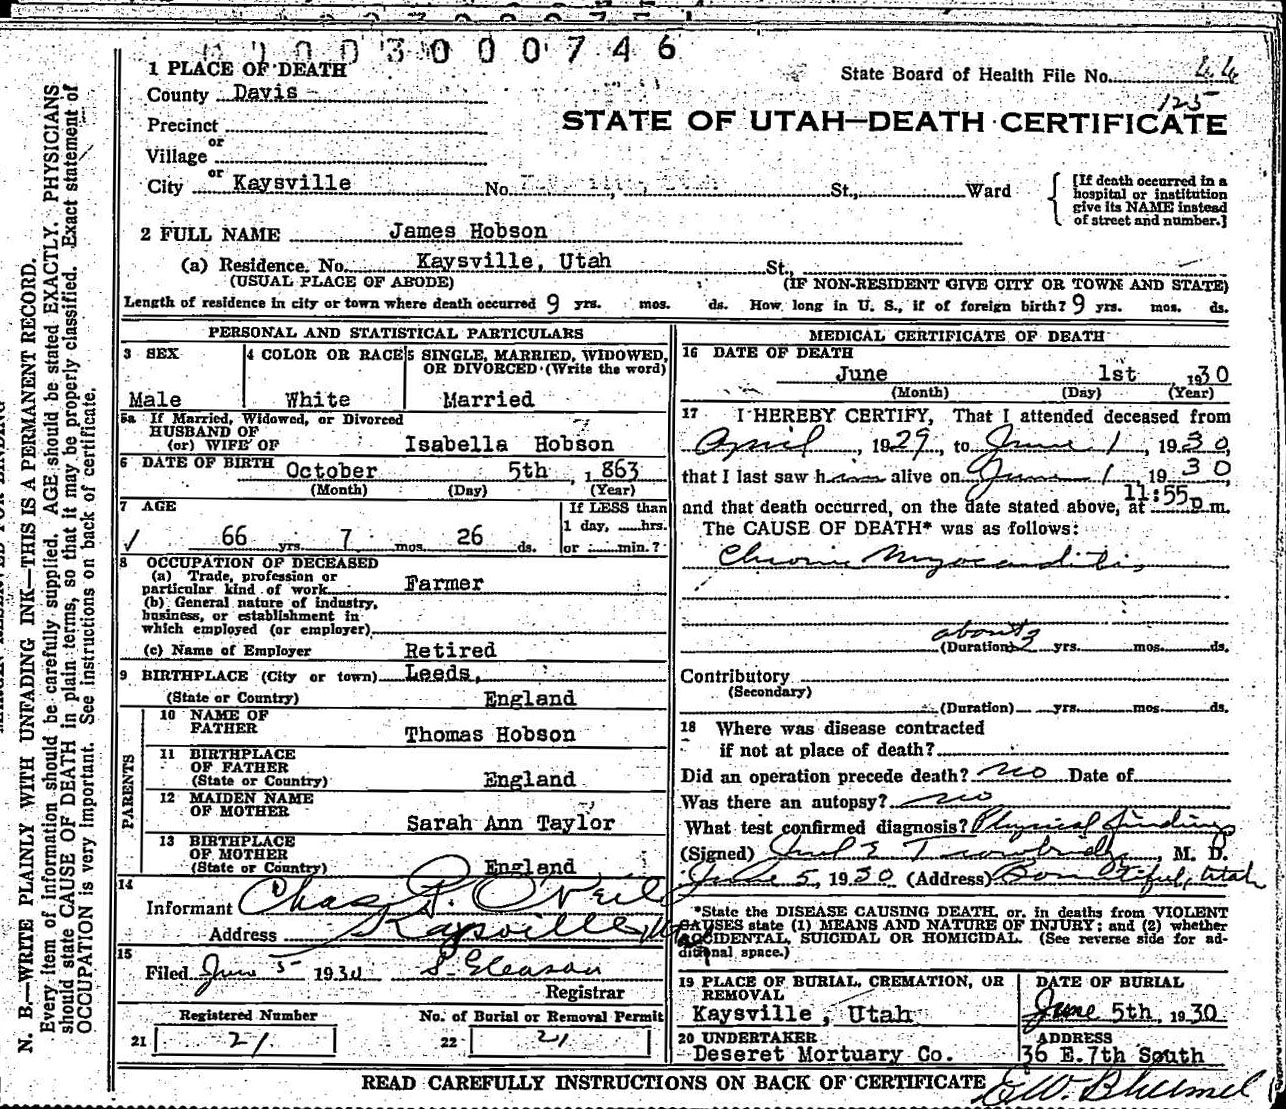 1003000746
1 PLACE OF DEATH
State Board of Health File No. 44
County Davis
125
STATE OF UTAH—DEATH CERTIFICATE
Precinct
or
Village
or
City Kaysville No. St., Ward
[If death occurred in a hospital or institution give its NAME instead of street and number.]
2 FULL NAME James Hobson
(a) Residence. No. Kaysville, Utah St.,
(USUAL PLACE OF ABODE) (IF NON-RESIDENT GIVE CITY OR TOWN AND STATE)
Length of residence in city or town where death occurred 9 yrs. mos. ds. How long in U. S., if of foreign birth? 9 yrs. mos. ds.
PERSONAL AND STATISTICAL PARTICULARS
3 SEX
Male
4 COLOR OR RACE
White
5 SINGLE, MARRIED, WIDOWED,
OR DIVORCED (Write the word)
Married
5a If Married, Widowed, or Divorced
HUSBAND OF
(or) WIFE OF Isabella Hobson
6 DATE OF BIRTH October 5th, 1863
(Month) (Day) (Year)
7 AGE
66 yrs. 7 mos. 26 ds.
If LESS than
1 day, ....hrs.
or ......min.?
8 OCCUPATION OF DECEASED
(a) Trade, profession or
particular kind of work Farmer
(b) General nature of industry,
business, or establishment in
which employed (or employer)
(c) Name of Employer Retired
9 BIRTHPLACE (City or town) Leeds,
(State or Country) England
PARENTS
10 NAME OF
FATHER Thomas Hobson
11 BIRTHPLACE
OF FATHER
(State or Country) England
12 MAIDEN NAME
OF MOTHER Sarah Ann Taylor
13 BIRTHPLACE
OF MOTHER
(State or Country) England
14
Informant Chas. P. O'Neil
Address Kaysville
15
Filed June 5 1930 S. Gleason
Registrar
Registered Number No. of Burial or Removal Permit
21 21 22 21
MEDICAL CERTIFICATE OF DEATH
16 DATE OF DEATH
June 1st 1930
(Month) (Day) (Year)
17 I HEREBY CERTIFY, That I attended deceased from
April, 1929, to June 1, 1930,
that I last saw him alive on June 1 1930
and that death occurred, on the date stated above, at 11:55 p.m.
The CAUSE OF DEATH* was as follows:
Chronic Myocarditis
about 3
(Duration) yrs. mos. ds.
Contributory
(Secondary)
(Duration) yrs. mos. ds.
18 Where was disease contracted
if not at place of death?
Did an operation precede death? no Date of
Was there an autopsy? no
What test confirmed diagnosis? Physical findings
(Signed) Trowbridge, M. D.
June 5, 1930 (Address) Bountiful, Utah
*State the DISEASE CAUSING DEATH, or, in deaths from VIOLENT
CAUSES state (1) MEANS AND NATURE OF INJURY; and (2) whether
ACCIDENTAL, SUICIDAL OR HOMICIDAL. (See reverse side for ad-
ditional space.)
19 PLACE OF BURIAL, CREMATION, OR
REMOVAL
Kaysville, Utah
DATE OF BURIAL
June 5th, 1930
20 UNDERTAKER
Deseret Mortuary Co.
ADDRESS
36 E. 7th South
READ CAREFULLY INSTRUCTIONS ON BACK OF CERTIFICATE
N. B.—WRITE PLAINLY WITH UNFADING INK—THIS IS A PERMANENT RECORD.
Every item of information should be carefully supplied. AGE should be stated EXACTLY. PHYSICIANS
should state CAUSE OF DEATH in plain terms, so that it may be properly classified. Exact statement of
OCCUPATION is very important. See instructions on back of certificate.